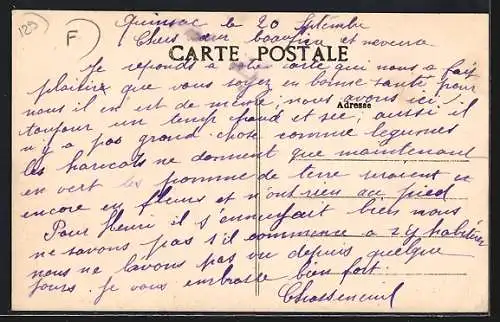 129
F
Quinsac le 20 Septembre
Chers sœur beaufrère et neveux
CARTE POSTALE
Je réponds a votre carte qui nous a fait
plaisire que vous soyez en bonne santé pour
nous il en est de meme, nous avons ici
Adresse
toujour un temp chaud et sec, aussi il
n'y a pas grand chose comme legumes
les haricots ne donnent que maintenant
en vert les pomme de terre sont
encore en fleurs et n'ont rien au pied
Pour Henri il s'ennuyait bien nous
ne savons pas s'il commence a s'y habituer
nous ne l'avons pas vu depuis quelque
jours. Je vous embrasse bien fort.
Chasseneuil